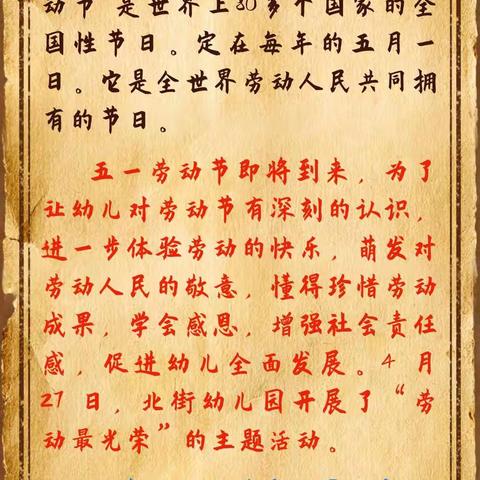 动节"是世界上80多个国家的全
国性节日。定在每年的五月一
日。它是全世界劳动人民共同拥
有的节日。
五一劳动节即将到来，为了
让幼儿对劳动节有深刻的认识，
进一步体验劳动的快乐，萌发对
劳动人民的敬意，懂得珍惜劳动
成果，学会感恩，增强社会责任
感，促进幼儿全面发展。4月
27日，北街幼儿园开展了“劳
动最光荣”的主题活动。